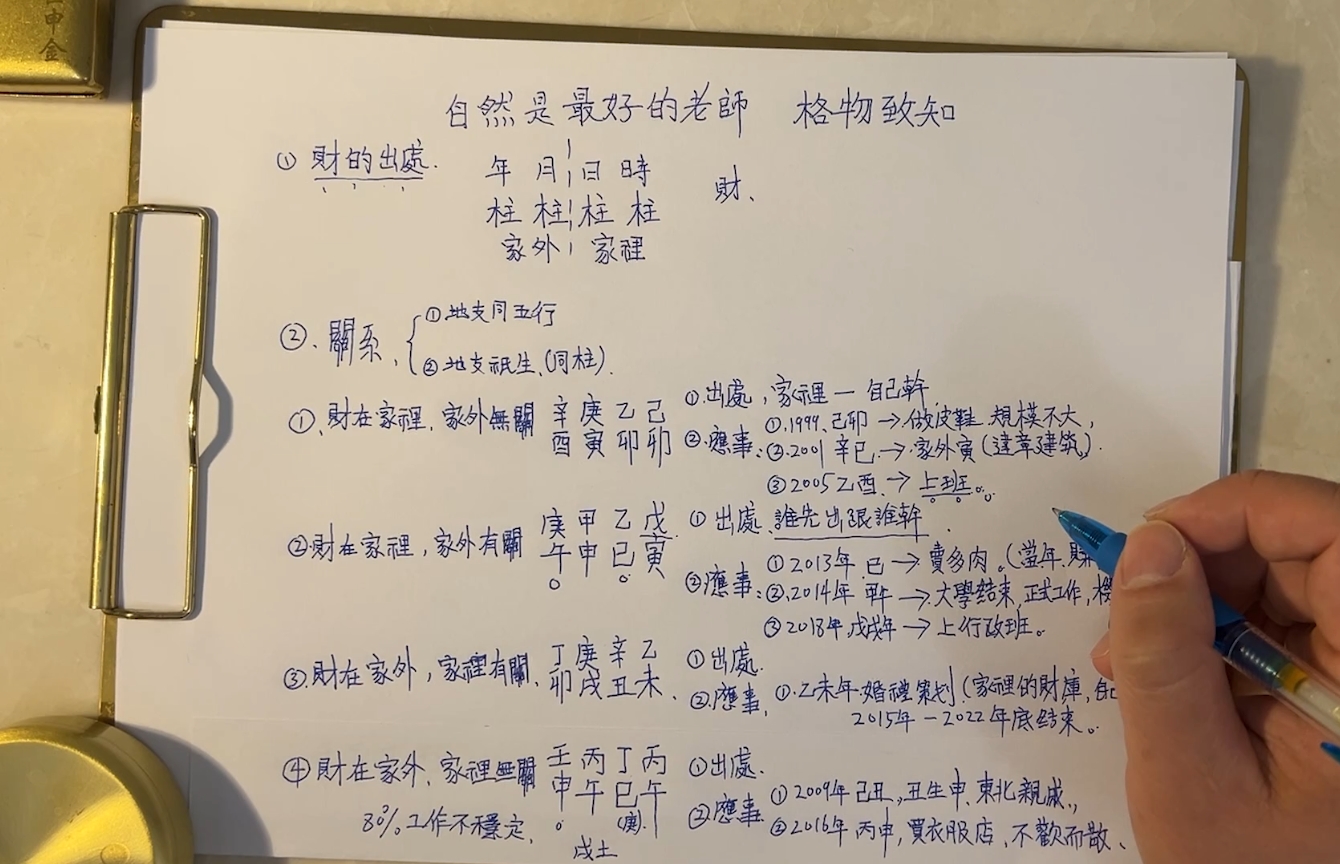 申金
自然是最好的老師 格物致知
① 財的出處. 年 月 日 時 財、
柱 柱 柱 柱
家外 家裡
②. 關系、 ①地支同五行
②地支祇生、(同柱).
①、財在家裡、家外無關 辛 庚 乙 己 ①.出處、家裡一自己幹
酉 寅 卯 卯 ②.應事: ①.1999、己卯→做皮鞋 規模不大,
②.2001 辛巳.→家外寅(違章建筑).
③2005乙酉.→上班。
②財在家裡,家外有關 庚 甲 乙 戊 ①出處、誰先出跟誰幹
午 申 巳 寅 ②應事: ①2013年.巳→賣多肉。(當年.財
②.2014年 甲午→大學结束,正式工作,
③2018年 戊戌年→上行政班。
③.財在家外,家裡有關、 丁 庚 辛 乙 ①出處.
卯 戌 丑 未、 ②.應事, ①.乙未年.婚禮策划(家裡的財庫,
2015年-2022年底结束。
④財在家外、家裡無關 壬 丙 丁 丙 ①出處.
申 午 巳 午 ②應事. ①2009年己丑、丑生申,東北親戚、
80%工作不穩定、 (庚) ②2016年丙申,買衣服店,不歡而散、
戊土